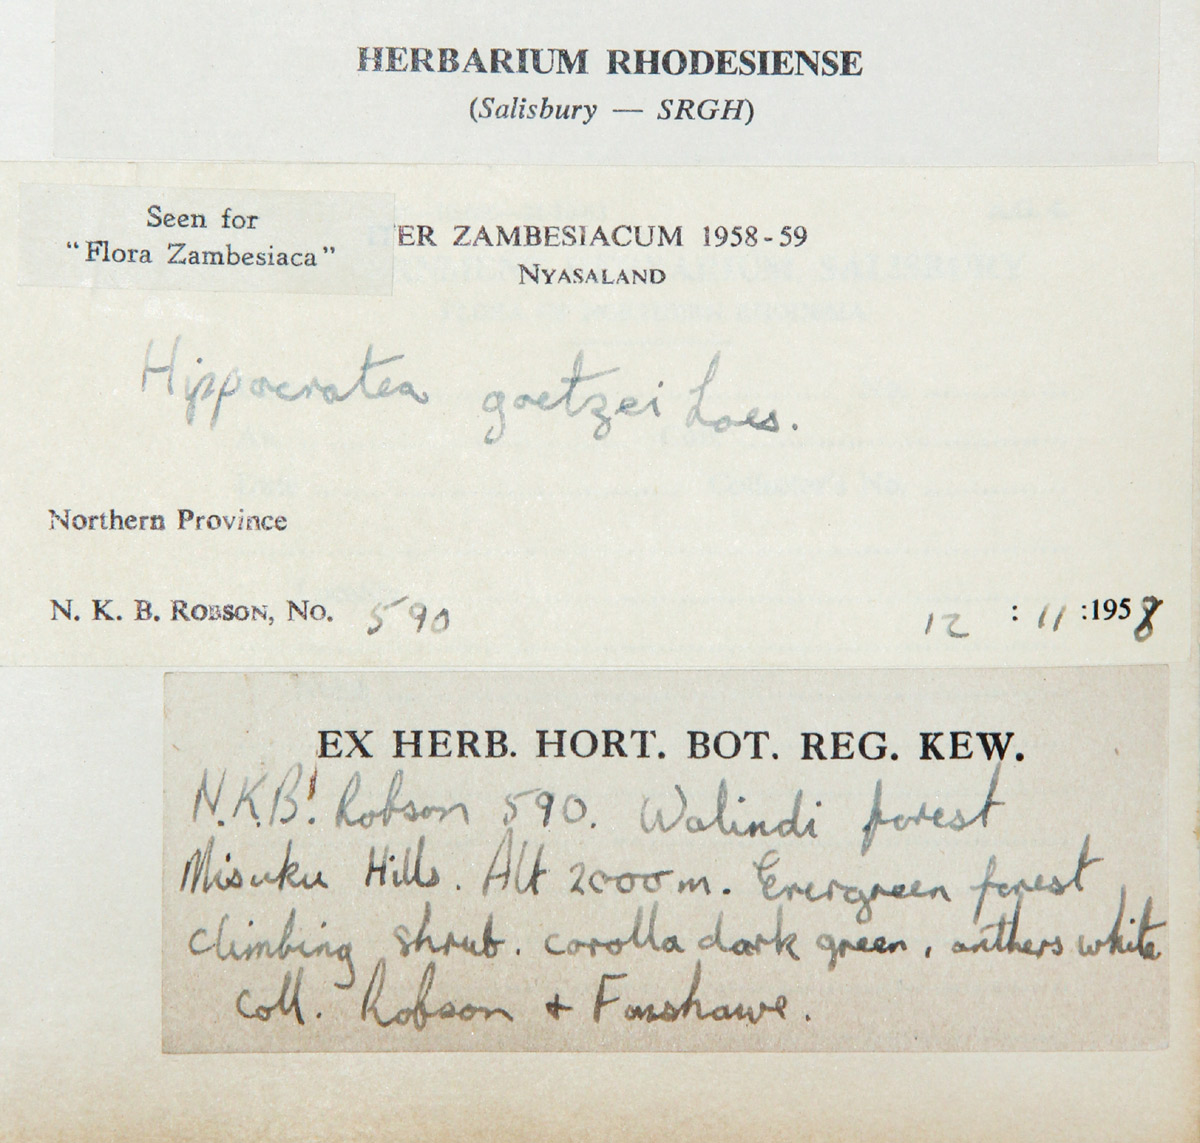 HERBARIUM RHODESIENSE
(Salisbury — SRGH)
Seen for
"Flora Zambesiaca"
ER ZAMBESIACUM 1958-59
NYASALAND
Hippocratea goetzei Loes.
Northern Province
N. K. B. ROBSON, No. 590
12 : 11 :1958
EX HERB. HORT. BOT. REG. KEW.
N.K.B. Robson 590. Walindi forest
Misuku Hills. Alt 2000m. Evergreen forest
climbing shrub. corolla dark green, anthers white
coll. Robson + Fanshawe.